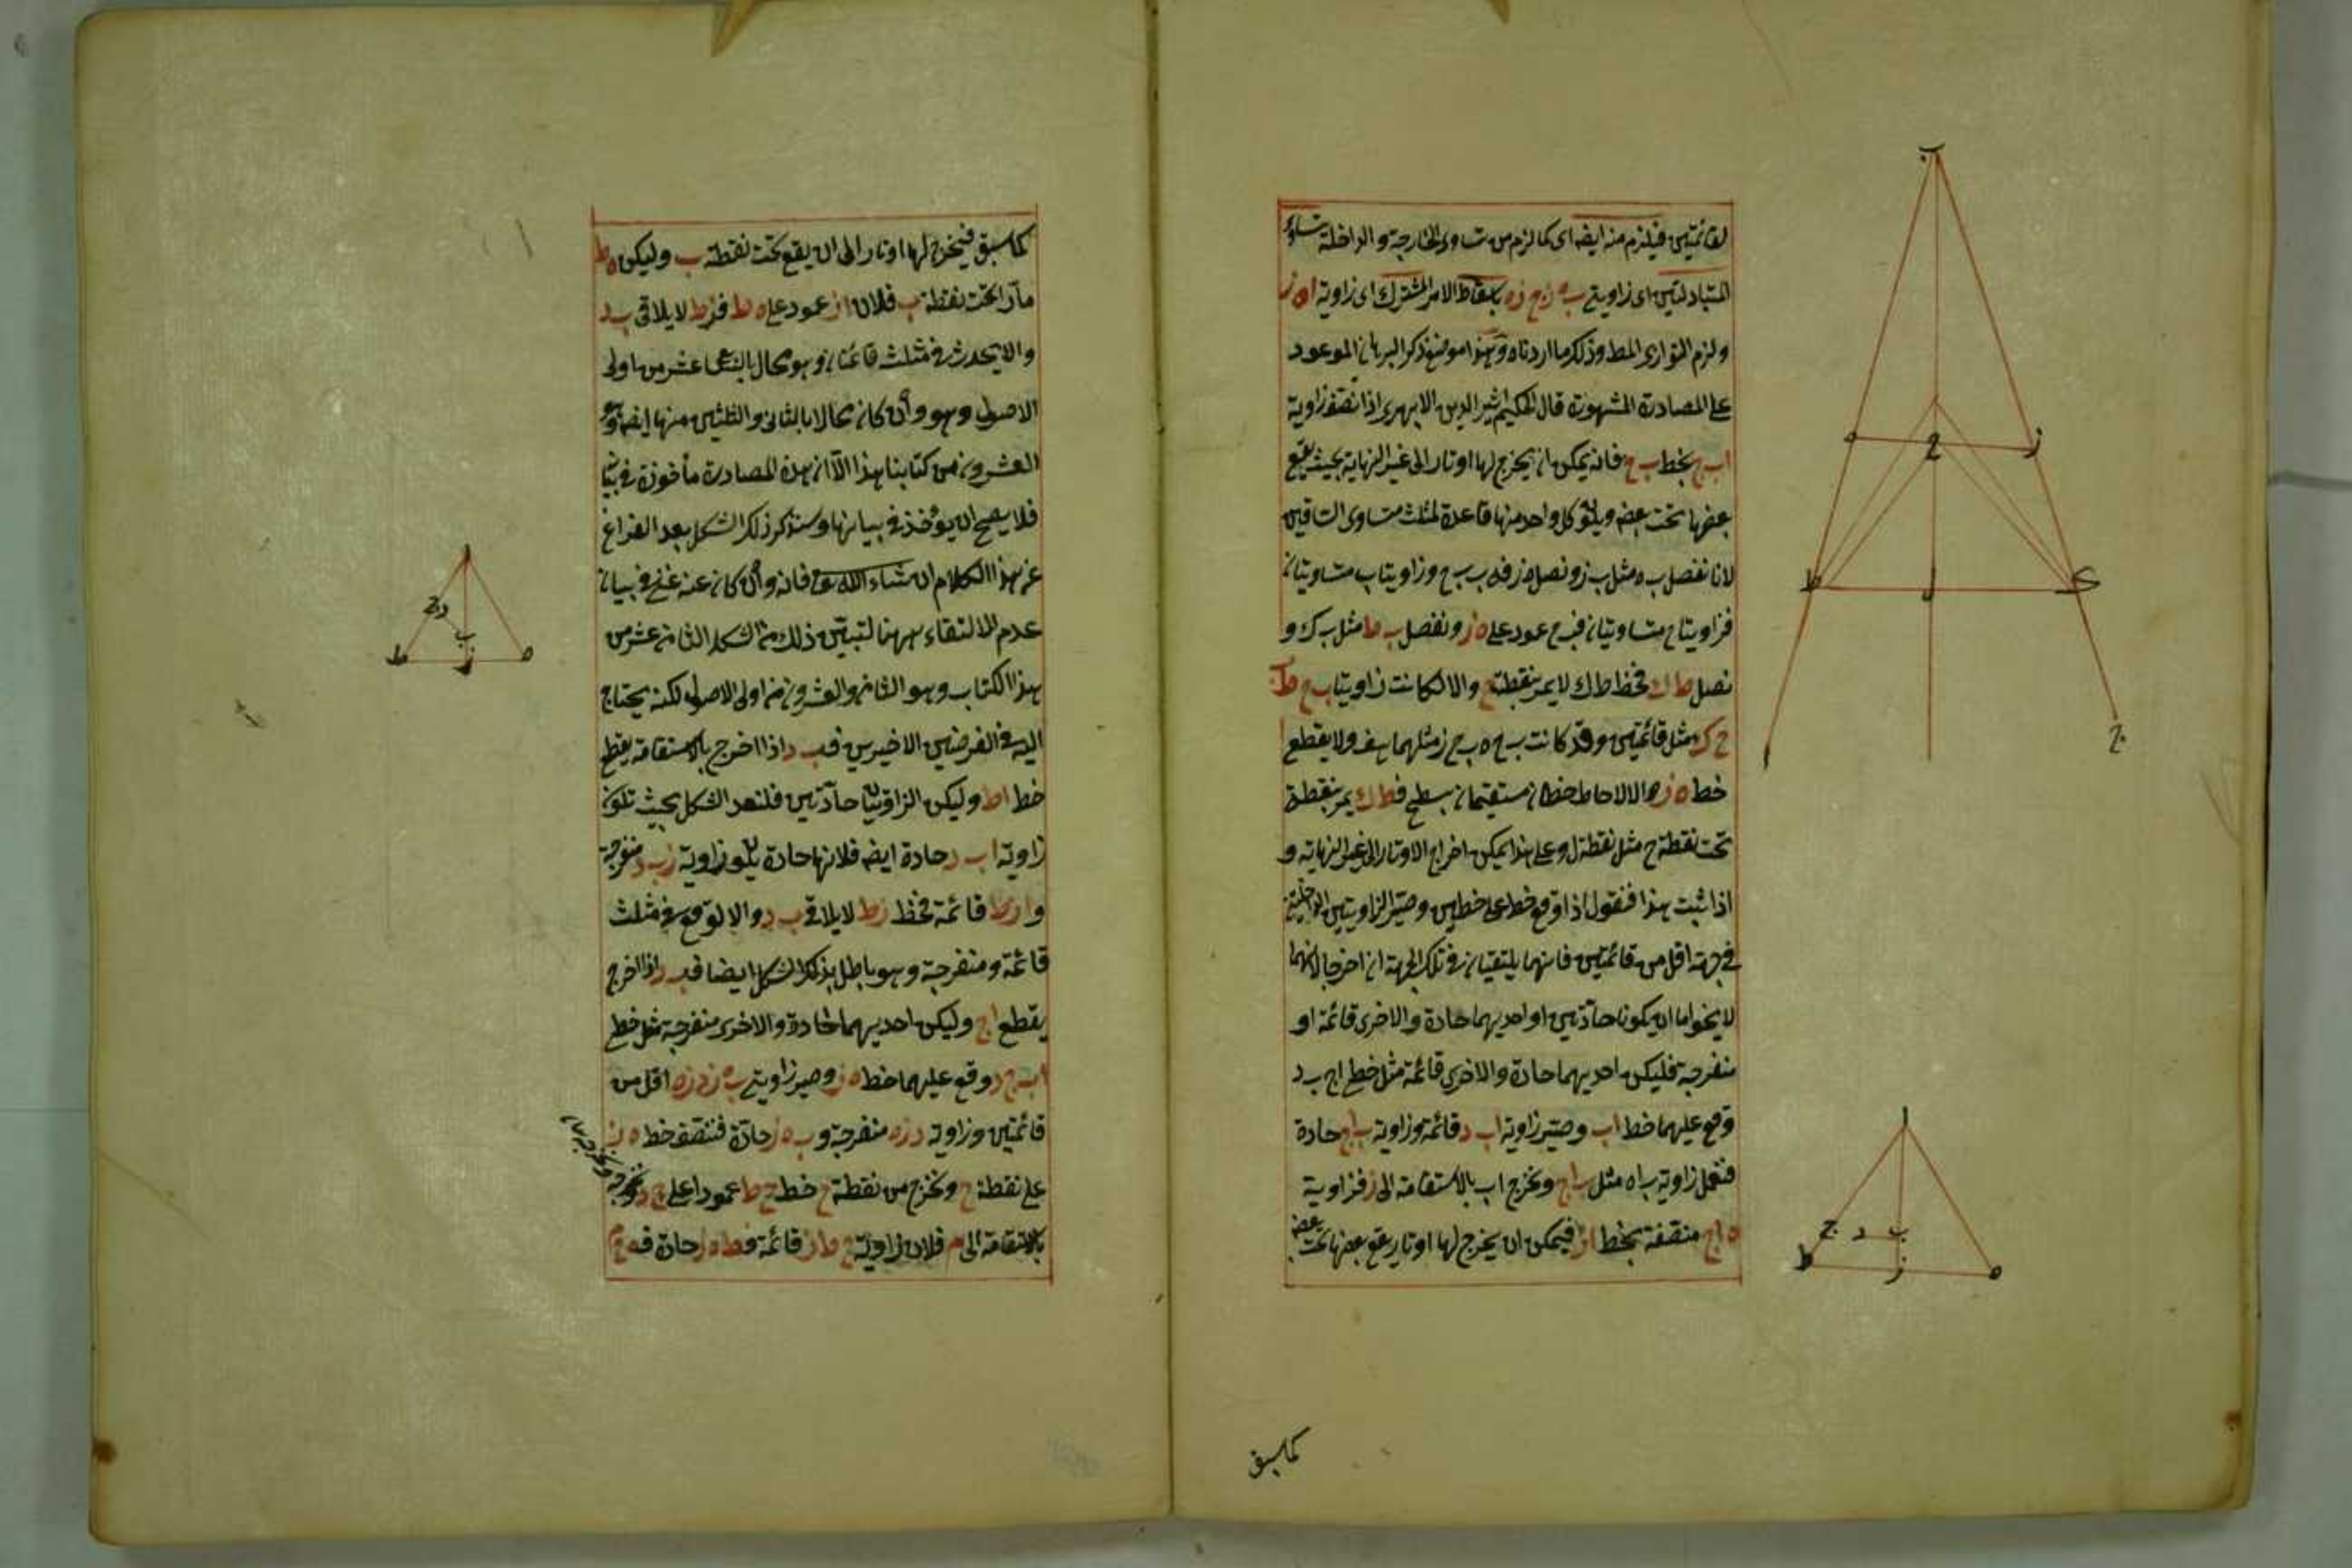 لقائمتين فيلزم منه ايضا اى كما لزم من تساوى الخارجة والداخلة تساوى
المتبادلتين اى زاويتى ب ه ز ج ز ه باسقاط الامر المشترك اى زاوية ا ه ز
ولزم التوازى المط وذلك ما اردناه وهذا موضع ذكر البرهان الموعود
على المصادرة المشهورة قال الحكيم اثير الدين الابهرى اذا نصف زاوية
ا ب ج بخط ب ح فانه يمكن ان يخرج لها اوتار الى غير النهاية بحيث يقع
بعضها تحت بعض ويكون كل واحد منها قاعدة لمثلث متساوى الساقين
لانا نفصل ب ه مثل ب ز ونصل ه ز فه ب ب ح وزاويتا ب متساويتان
فزاويتا ح متساويتان فب ح عمود على ه ز ونفصل ب ط مثل ب ك و
نصل ط ك فخط ط ك لا يمر بنقطة ح والا لكانت زاويتا ب ح ط ب
ح ك مثل قائمتين وقد كانت ب ح ه ب ح ز مثلهما هف ولا يقطع
خط ه ز والا لاحاط خطان مستقيمان بسطح فط ك يمر بنقطة
تحت نقطة ح مثل نقطة ل وعلى هذا يمكن اخراج الاوتار الى غير النهاية و
اذا ثبت هذا فنقول اذا وقع خط على خطين وصير الزاويتين الداخلتين
فى جهة اقل من قائمتين فانهما يلتقيان فى تلك الجهة ان اخرجا لانهما
لا يخلو اما ان يكونا حادتين او احديهما حادة والاخرى قائمة او
منفرجة فليكن احديهما حادة والاخرى قائمة مثل خط ا ج ب د
وقع عليهما خط ا ب وصير زاوية ا ب د قائمة وزاوية ب ا ج حادة
فنعمل زاوية ب ا ه مثل ب ا ج ونخرج ا ب بالاستقامة الى ز فزاوية
ه ا ج منتصفة بخط ا ز فيمكن ان يخرج لها اوتار يقع بعضها تحت بعض
كما سبق
ب
ه ح ز
ط ل ك
ا ج
ا
ج د ب
ط ز ه
كما سبق فيخرج لها اوتار الى ان يقع تحت نقطة ب وليكن ه ط
مارا تحت نقطة ب فلان ا ز عمود على ه ط فزط لا يلاقى ب د
والا يحدث فى مثلث قائمتان وهو محال بالسابع عشر من اولى
الاصول وهو وان كان محالا بالثانى والثلثين منها ايضا وهو
العشرون من كتابنا هذا الا ان هذه المصادرة مأخوذة فى بيانه
فلا يصح ان يؤخذ فى بيانها وسنذكر ذلك الشكل بعد الفراغ
عن هذا الكلام ان شاء الله تع فانه وان كان عنه غنى فى بيان
عدم الالتقاء ههنا لتبين ذلك من الشكل الثامن عشر من
هذا الكتاب وهو الثامن والعشرون من اولى الاصول لكنه يحتاج
اليه فى الفرضين الاخيرين فب د اذا اخرج بالاستقامة يقطع
خط ا ط وليكن الزاويتان حادتين فلنعد الشكل بحيث تكون
زاوية ا ب د حادة ايضا فلانها حادة يكون زاوية ز ب د منفرجة
و ا ز ط قائمة فخط ز ط لا يلاقى ب د والا لوقع فى مثلث
قائمة ومنفرجة وهو باطل بذلك الشكل ايضا فب د اذا اخرج
يقطع ا ج وليكن احديهما حادة والاخرى منفرجة مثل خط
ا ب ج د وقع عليهما خط ه ز وصير زاويتى ب ه ز د ز ه اقل من
قائمتين وزاوية د ز ه منفرجة و ب ه ز حادة فننصف خط ه ز
على نقطة ح ونخرج من نقطة ح خط ح ط عمودا على ج د ونخرجه
بالاستقامة الى م فلان زاوية ح ط ز قائمة
ا
ج د ب
ط ز ه